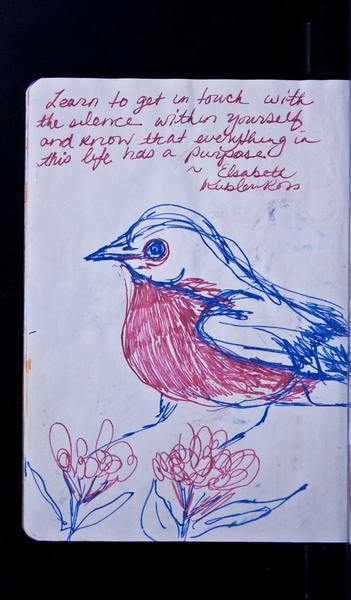 Learn to get in touch with
the silence within yourself
and know that everything in
this life has a purpose
~ Elsabeth
Kubler Ross